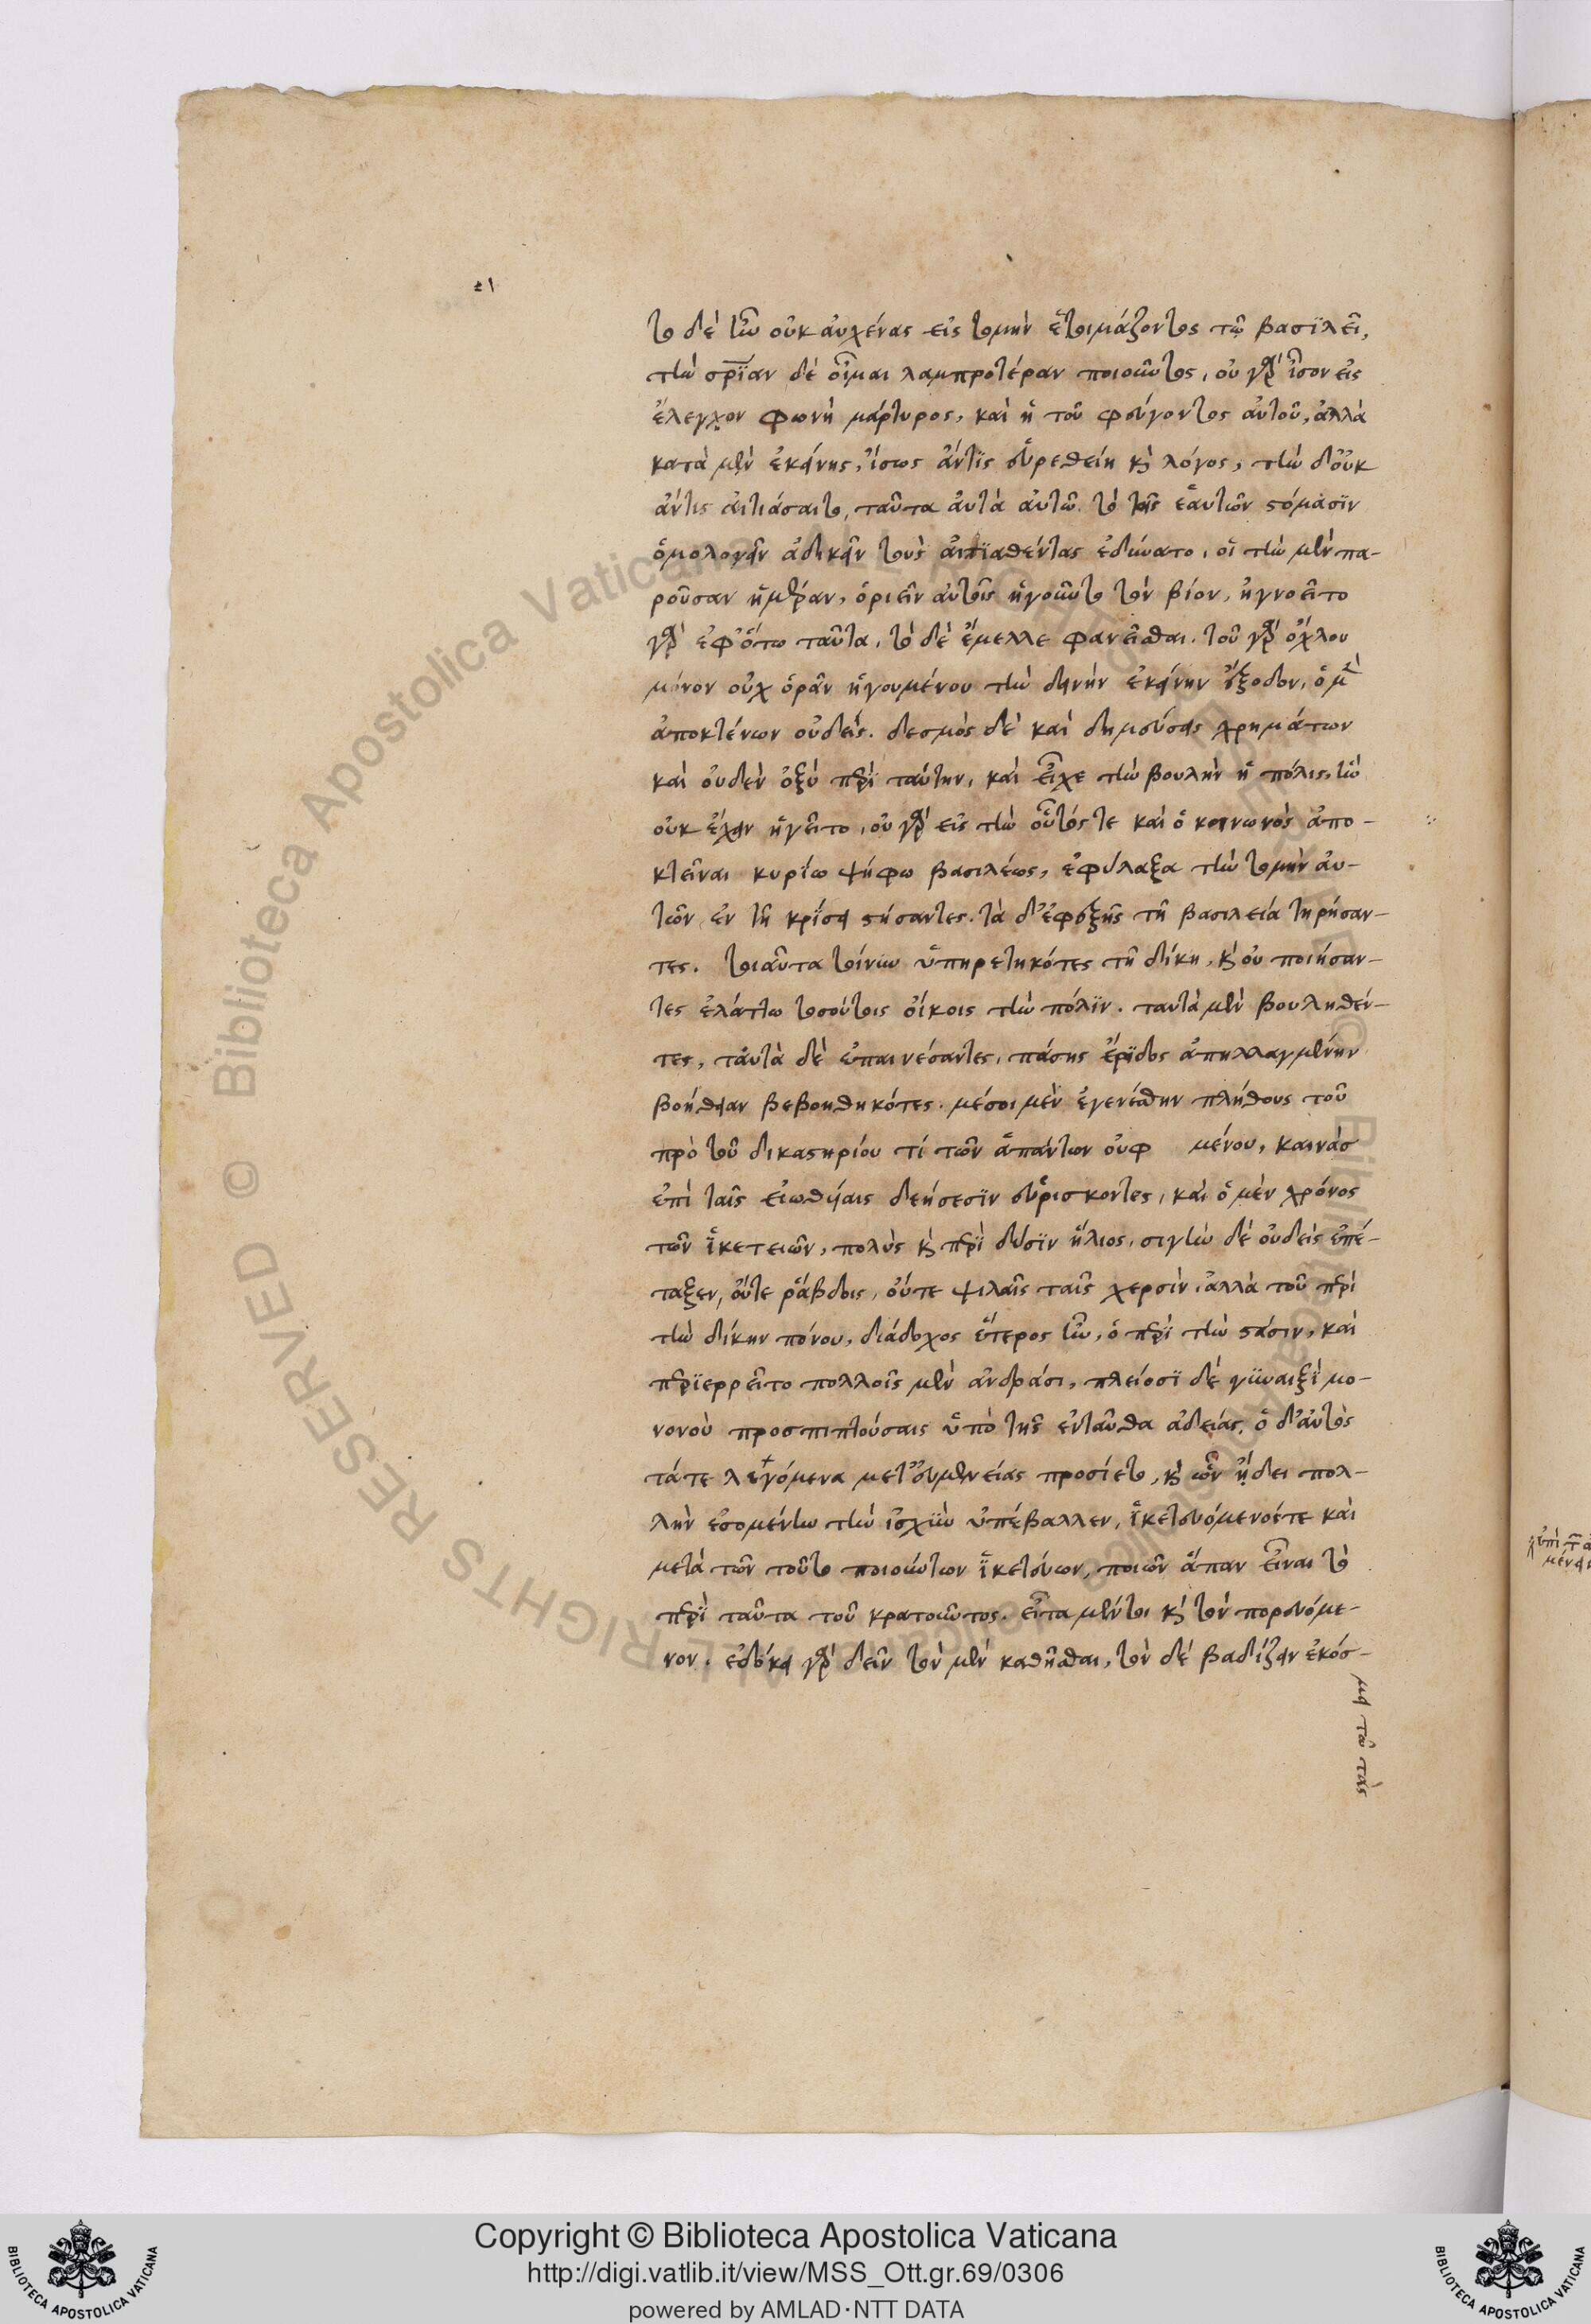 το δὲ ἦν οὐκ αὐχένας εἰς τομὴν ἑτοιμάζοντος τῷ βασϊλεῖ,
τὴν σρ̅ϊαν δὲ οἶμαι λαμπροτέραν ποιοῦντος, οὐ γὰρ ἶσον εἰς
ἔλεγχον φωνὴ μάρτυρος, καὶ ἡ τοῦ φεύγοντος αὐτοῦ, ἀλλὰ
κατὰ μὲν ἐκείνης, ἴσως ἄντϊς εὑρεθείη καὶ λόγος, τὴν δ'οὐκ
ἄντις αἰτιάσαιτο, ταῦτα αὐτὰ αὐτῶ. τὸ τοῖς ἑαυτῶν στόμασϊν
ὁμολογεῖν ἀδικεῖν τοὺς αἰτϊαθέντας ἐδύνατο, οἳ τὴν μὲν πα-
ροῦσαν ἡμέραν, ὁριεῖν αὐτοῖς ἡγοῦντο τὸν βίον, ἠγνοεῖτο
γὰρ ἐφ'ὅτω ταῦτα, τὸ δὲ ἔμελλε φανεῖσθαι. τοῦ γὰρ ὄχλου
μόνον οὐχ ὁρᾶν ἡγουμένου τὴν δεινὴν ἐκείνην ἔξοδον, ὁ μὲν
ἀποκτένων οὐδείς. δεσμὸς δὲ καὶ δημεύσεις χρημάτων
καὶ οὐδὲν ὀξὺ περὶ ταύτην, καὶ εἶχε τὴν βουλὴν ἡ πόλις, ἣν
οὐκ ἔχειν ἡγεῖτο, οὐ γὰρ εἰς τὴν οὗτός τε καὶ ὁ κοινωνὸς ἀπο-
κτεῖναι κυρίω ψήφω βασιλέως, ἐφύλαξα τὴν τομὴν αὐ-
τῶν ἐν τῆ κρίσει στήσαντες. τὰ δ'ἐφεξῆς τῆ βασιλεία τηρήσαν-
τες. τοιαῦτα τοίνυν ὑπηρετηκότες τῆ δίκη, καὶ οὐ ποιήσαν-
τες ἐλάττω τοσούτοις οἴκοις τὴν πόλϊν. ταυτὰ μὲν βουληθέν-
τες, ταὐτὰ δὲ ἐπαινέσαντες, πάσης ἔριδος ἀπηλλαγμένην
βοήθειαν βεβοηθηκότες. μέσοι μὲν ἐγενέσθην πλήθους τοῦ
πρὸ τοῦ δικαστηρίου τί τῶν ἁπάντων οὐφ μένου, καινὰσ
ἐπὶ ταῖς εἰωθείαις δεήσεσϊν εὑρίσκοντες, καὶ ὁ μὲν χρόνος
τῶν ἱκετειῶν, πολὺς καὶ περὶ δύσϊν ἥλιος, σιγὴν δὲ οὐδεὶς ἐπέ-
ταξεν, οὔτε ῥάβδοις, οὔτε ψιλαῖς ταῖς χερσὶν, ἀλλὰ τοῦ περὶ
τὴν δίκην πόνου, διάδοχος ἕτερος ἦν, ὁ περὶ τὴν στάσιν, καὶ
περιερρεῖτο πολλοῖς μὲν ἀνδράσι, πλείοσϊ δὲ γϋναιξὶ μο-
νονοὺ προσπιπτούσαις ὑπὸ τῆς ἐνταῦθα ἀδείας. ὁ δ'αὐτὸς
τάτε λεγόμενα μετ'εὐμενείας προσίετο, καὶ ὧν ᾔδει πολ-
λὴν ἐσομένην τὴν ἰσχὺν ὑπέβαλλεν, ἱκετευόμενοέτε καὶ
μετὰ τῶν τοῦτο ποιούντων ἱκετεύων, ποιῶν ἅπαν εἶναι τὸ
περὶ ταῦτα τοῦ κρατοῦντος. εἶτα μέντοι καὶ τὸν πορευόμε-
νον. ἐδόκει γὰρ δεῖν τὸν μὲν καθῆσθαι, τὸν δὲ βαδίζειν ἐκόσ-